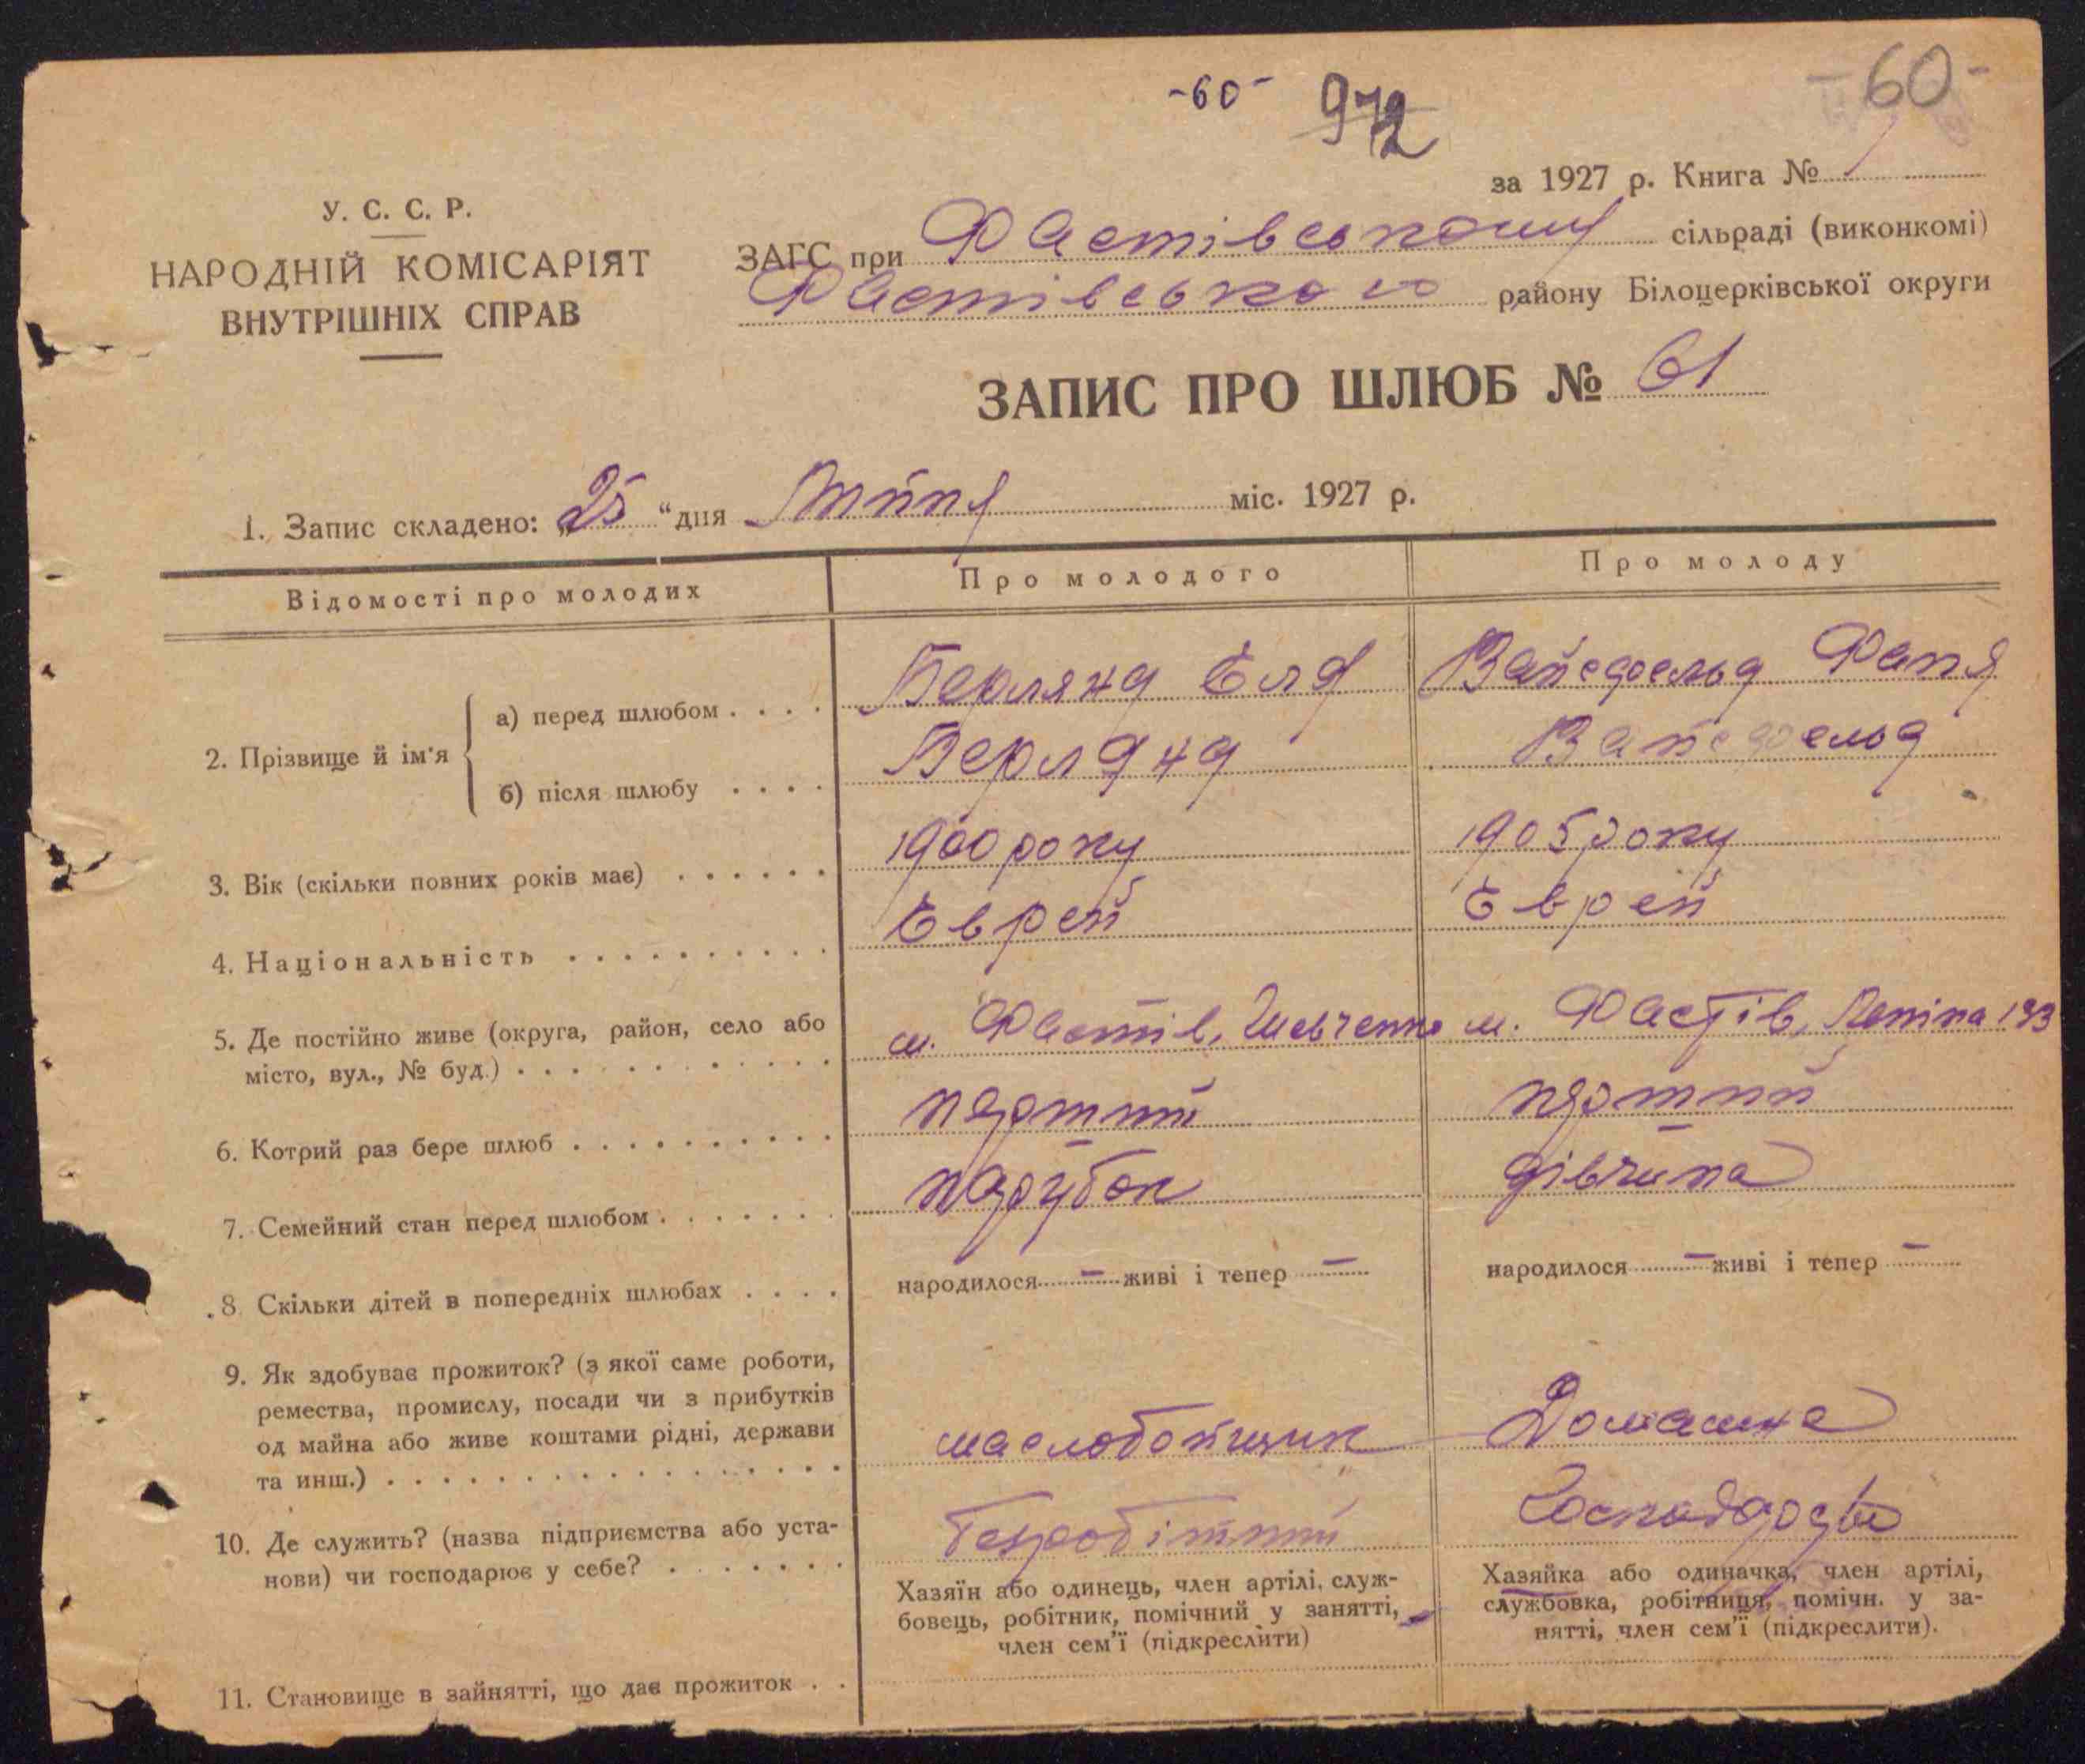 -60- 972 -60-
за 1927 р. Книга №
У. С. С. Р.
НАРОДНІЙ КОМІСАРІЯТ
ВНУТРІШНІХ СПРАВ
ЗАГС при Фастівському сільраді (виконкомі)
Фастівського району Білоцерківської округи
ЗАПИС ПРО ШЛЮБ № 61
1. Запис складено: „25“ дня Липня міс. 1927 р.
Відомості про молодих Про молодого Про молоду
2. Прізвище й ім'я
а) перед шлюбом . . . . Берлянд Еля Вайсфельд Фаня
б) після шлюбу . . . . Берлянд Вайсфельд
3. Вік (скільки повних років має) . . . . . . 1900 року 1905 року
4. Національність . . . . . . . . . . Еврей Еврей
5. Де постійно живе (округа, район, село або
місто, вул., № буд.) . . . . . . . . . . . . м. Фастів, Шевченко м. Фастів, Леніна 193
6. Котрий раз бере шлюб . . . . . . . . . . первий первий
7. Семейний стан перед шлюбом . . . . . . . парубок дівчина
8 Скільки дітей в попередніх шлюбах . . . . народилося - живі і тепер - народилося - живі і тепер -
9. Як здобуває прожиток? (з якої саме роботи,
ремества, промислу, посади чи з прибутків
од майна або живе коштами рідні, держави
та инш.) . . . . . . . . . . . . . . . . . маслобойщик Домашнє
10. Де служить? (назва підприємства або уста-
нови) чи господарює у себе? . . . . . . . безробітний Господарство
Хазяїн або одинець, член артілі, служ-
бовець, робітник, помічний у занятті,
член сем'ї (підкреслити)
Хазяйка або одиначка, член артілі,
службовка, робітниця, помічн. у за-
нятті, член сем'ї (підкреслити).
11. Становище в зайнятті, що дає прожиток . .